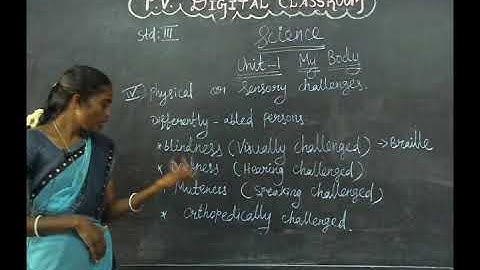 P.V. DIGITAL CLASSROOM
Std: III
Science
Unit-1 My Body
V. Physical or Sensory challenges.
Differently-abled persons
*Blindness (Visually challenged) → Braille
* (Hearing challenged)
Muteness (Speaking challenged)
* Orthopedically challenged.